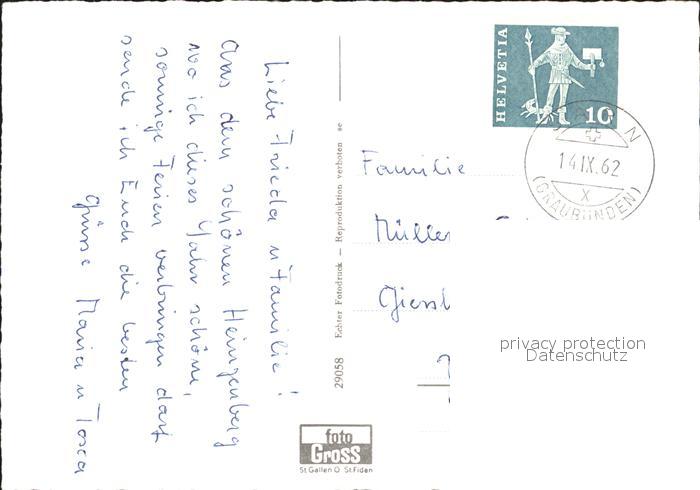 Liebe Frieda u Familie!
Aus dem schönen Heinzenberg
wo ich dieses Jahr schöne,
sonnige Ferien verbringen darf
sende ich Euch die besten
Grüsse Maria u Tosca
29058 Echter Fotodruck – Reproduktion verboten se
foto
GROSS
St. Gallen O. St. Fiden
HELVETIA
10
14.IX.62
X
(GRAUBÜNDEN)
Familie
Müller
privacy protection
Datenschutz